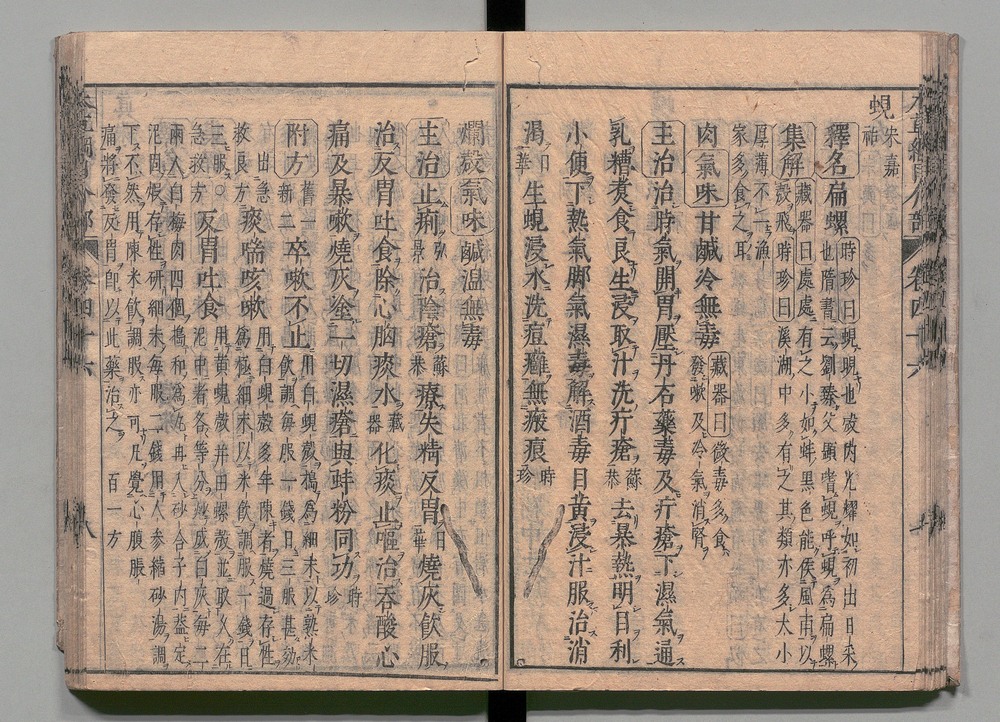 蜆 宋嘉祐
釋名 扁螺 時珍曰蜆晛也殼内光耀如初出日采
也隋書云劉臻父顯嗜蜆呼蜆為扁螺
集解 藏器曰處處有之小如蚌黑色能候風雨以
殼飛時珍曰溪湖中多有之其類亦多大小
厚薄不一漁
家多食之耳
肉氣味甘鹹冷無毒 藏器曰微毒多食
發嗽及冷氣消腎
主治治時氣開胃壓丹石藥毒及疔瘡下濕氣通
乳糟煮食良生浸取汁洗疔瘡 蘇恭 去暴熱明目利
小便下熱氣脚氣濕毒解酒毒目黃浸汁服治消
渇 日華 生蜆浸水洗痘癰無瘢痕 時珍
爛殼氣味鹹温無毒
主治止痢 弘景 治陰瘡 蘇恭 療失精反胃 日華 燒灰飲服
治反胃吐食除心胸痰水 藏器 化痰止嘔治吞酸心
痛及暴嗽燒灰塗一切濕瘡與蚌粉同功 時珍
附方 舊一新二 卒嗽不止 用白蜆殼搗為細末以熟米
飲調每服一錢日三服甚効
出急
救良方 痰喘咳嗽 用白蜆殼多年陳者燒過存性
為極細末以米飲調服一錢日
三服○
急救方 反胃吐食 用黃蜆殼并田螺殼並取久在
泥中者各等分炒成白灰每二
兩入白梅肉四個搗和為丸再入砂合子内蓋定
泥固煅存性研細末每服二錢用人参縮砂湯調
下不然用陳米飲調服亦可凡覺心腹脹
痛將發反胃即以此藥治之 百一方
卷四十六